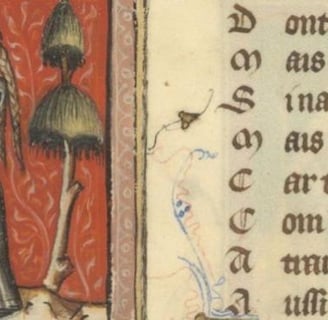 D ont
M ais
S i na
M ais
C ar t
C om
A
A ussi